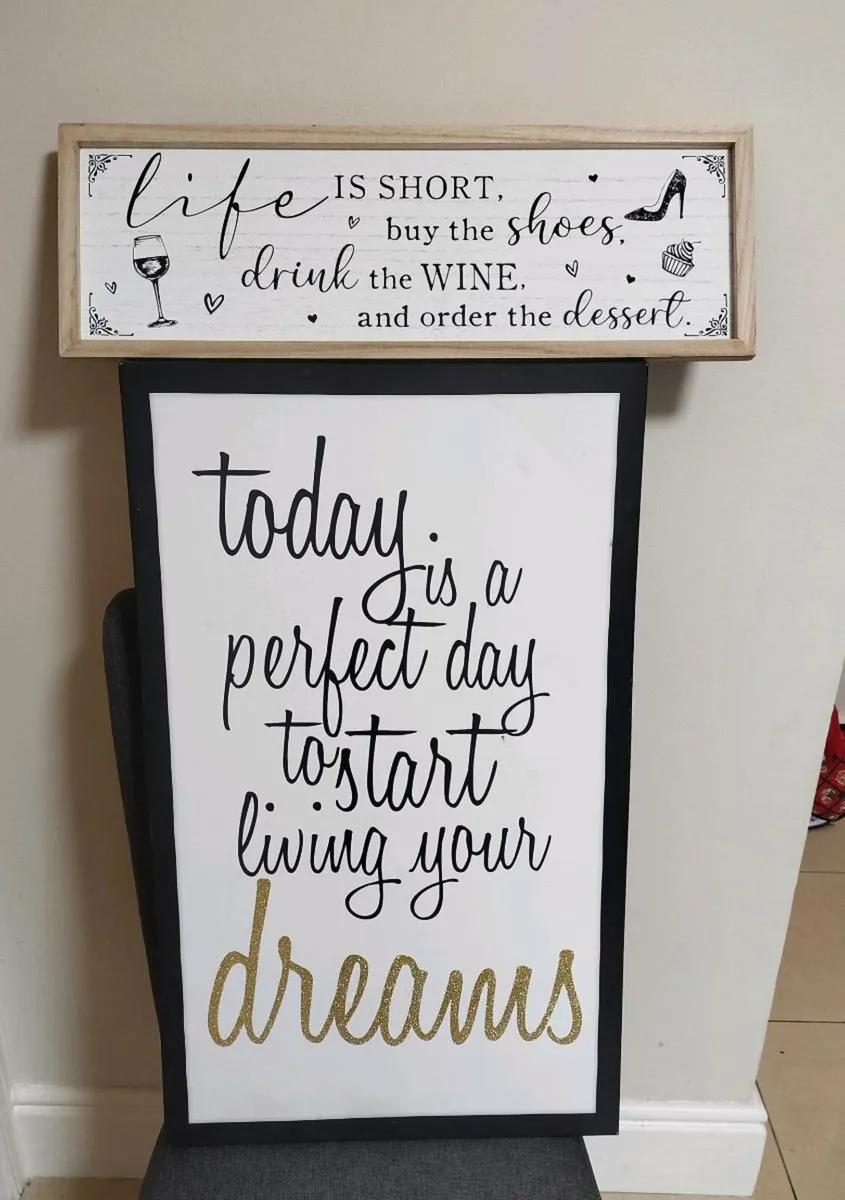 life IS SHORT,
buy the shoes,
drink the WINE,
and order the dessert.
today
is a
perfect day
to start
living your
dreams